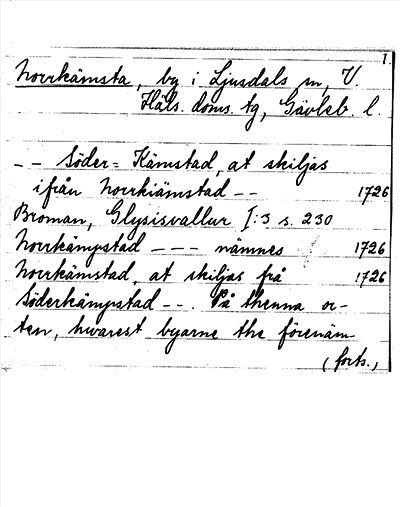 1.
Norrkämsta, by i Ljusdals sn, V.
Häls. doms. tg, Gävleb. l.
-- Söder= Kämstad, at skiljas
ifrån Norrkiämstad -- 1726
Broman, Glysisvallur I:3 s. 230
Norrkämpstad --- nämnes 1726
Norrkämstad, at skiljas frå 1726
Söderkämpstad --. På thenna or-
ten, hwarest byarne the förenäm-
(forts.)